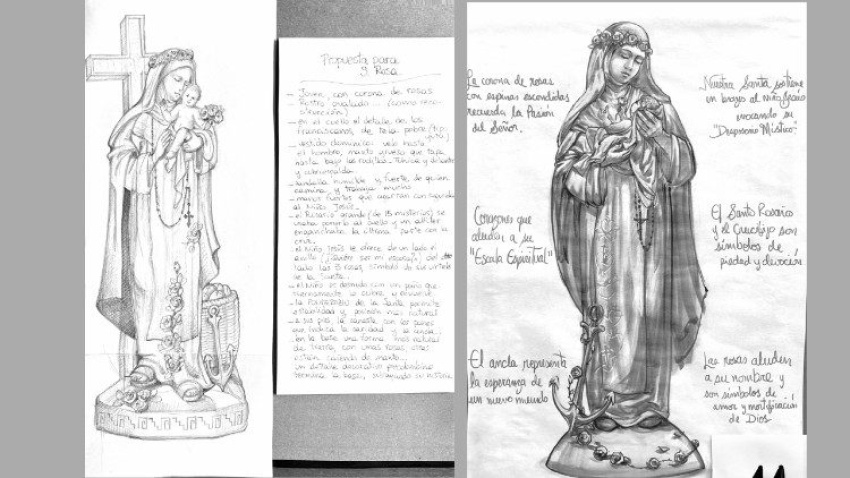 Propuesta para
S. Rosa
- Joven, con corona de rosas
- Rostro ovalado... (como reco-
strucción)
- en el cuello el detalle de las
franciscanas, de tela pobre (tip.
- vestido dominico: velo hasta
el hombro, manto grueso que tapa
hasta bajo las rodillas. Túnica y delantal
- sandalia humilde y fuerte de quien
camina, y trabaja mucho
- manos fuertes que aprietan con
al Niño Jesús.
- el Rosario grande (de 15 misterios) se
usaba ponerlo al cuello y un alfiler
enganchaba la última parte con la
cruz.
- el Niño Jesús le ofrece de un lado el
anillo
lado las 5 rosas, símbolo de
de la Santa.
- el Niño es desnudo con un paño que
suavemente lo cubre y envuelve
- la posición de la Santa permite
estabilidad y posición más natural
- a sus pies, la canasta con los panes
que indica la caridad y la
- en la base una forma más natural
de tierra, con unas rosas, otras
están cayendo de manto...
un detalle decorativo precolombino
termina la base, subrayando su historia
La corona de rosas
con espinas escondidas
recuerda la Pasión
del Señor.
Nuestra Santa sostiene
en brazos al niño Jesús
evocando su
"Desposorio Místico"
Corazones que
aluden a su
"Escala Espiritual"
El Santo Rosario
y el Crucifijo son
símbolos de
piedad y devoción
El ancla representa
la esperanza de
un nuevo mundo
Las rosas aluden
a su nombre y
son símbolos de
amor y mortificación
de Dios